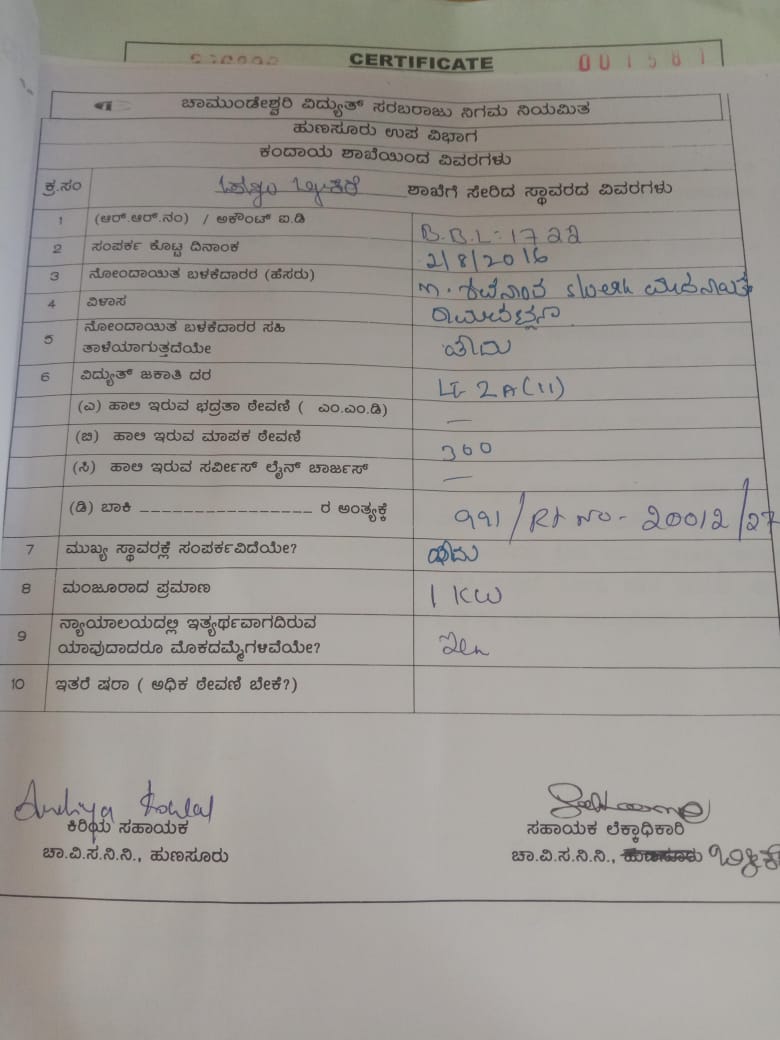 CERTIFICATE 001581
ಚಾಮುಂಡೇಶ್ವರಿ ವಿದ್ಯುತ್ ಸರಬರಾಜು ನಿಗಮ ನಿಯಮಿತ
ಹುಣಸೂರು ಉಪ ವಿಭಾಗ
ಕಂದಾಯ ಶಾಖೆಯಿಂದ ವಿವರಗಳು
ಕ್ರ.ಸಂ ಶಾಖೆಗೆ ಸೇರಿದ ಸ್ಥಾವರದ ವಿವರಗಳು
1 (ಆರ್.ಆರ್.ನಂ) / ಅಕೌಂಟ್ ಐ.ಡಿ B.B.L:1722
2 ಸಂಪರ್ಕ ಕೊಟ್ಟ ದಿನಾಂಕ 2/8/2016
3 ನೋಂದಾಯಿತ ಬಳಕೆದಾರರ (ಹೆಸರು)
4 ವಿಳಾಸ
5 ನೋಂದಾಯಿತ ಬಳಕೆದಾರರ ಸಹಿ
ತಾಳೆಯಾಗುತ್ತದೆಯೇ ಹೌದು
6 ವಿದ್ಯುತ್ ಜಕಾತಿ ದರ LT 2A(11)
(ಎ) ಹಾಲಿ ಇರುವ ಭದ್ರತಾ ಠೇವಣಿ ( ಎಂ.ಎಂ.ಡಿ) —
(ಬಿ) ಹಾಲಿ ಇರುವ ಮಾಪಕ ಠೇವಣಿ 360
(ಸಿ) ಹಾಲಿ ಇರುವ ಸರ್ವೀಸ್ ಲೈನ್ ಚಾರ್ಜಸ್ —
(ಡಿ) ಬಾಕಿ ________________ ರ ಅಂತ್ಯಕ್ಕೆ 991/Rt No- 20012/27
7 ಮುಖ್ಯ ಸ್ಥಾವರಕ್ಕೆ ಸಂಪರ್ಕವಿದೆಯೇ? ಹೌದು
8 ಮಂಜೂರಾದ ಪ್ರಮಾಣ 1 KW
9 ನ್ಯಾಯಾಲಯದಲ್ಲಿ ಇತ್ಯರ್ಥವಾಗದಿರುವ
ಯಾವುದಾದರೂ ಮೊಕದಮ್ಮೆಗಳಿವೆಯೇ? ಇಲ್ಲ
10 ಇತರೆ ಷರಾ ( ಅಧಿಕ ಠೇವಣಿ ಬೇಕೆ?)
ಕಿರಿಯ ಸಹಾಯಕ
ಚಾ.ವಿ.ಸ.ನಿ.ನಿ., ಹುಣಸೂರು
ಸಹಾಯಕ ಲೆಕ್ಕಾಧಿಕಾರಿ
ಚಾ.ವಿ.ಸ.ನಿ.ನಿ., ಹುಣಸೂರು